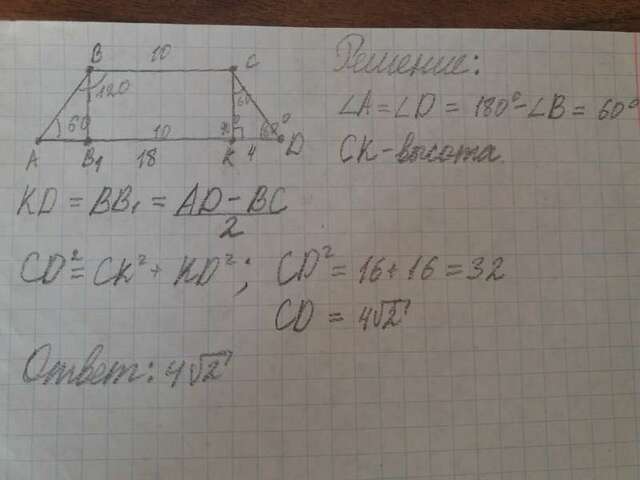 Решение:
∠A = ∠D = 180° - ∠B = 60°
CK - высота
KD = BB₁ = (AD - BC) / 2
CD² = CK² + KD²; CD² = 16 + 16 = 32
CD = 4√2
Ответ: 4√2
B 10 C
120 60
60 60°
A B₁ 10 K 4 D
18